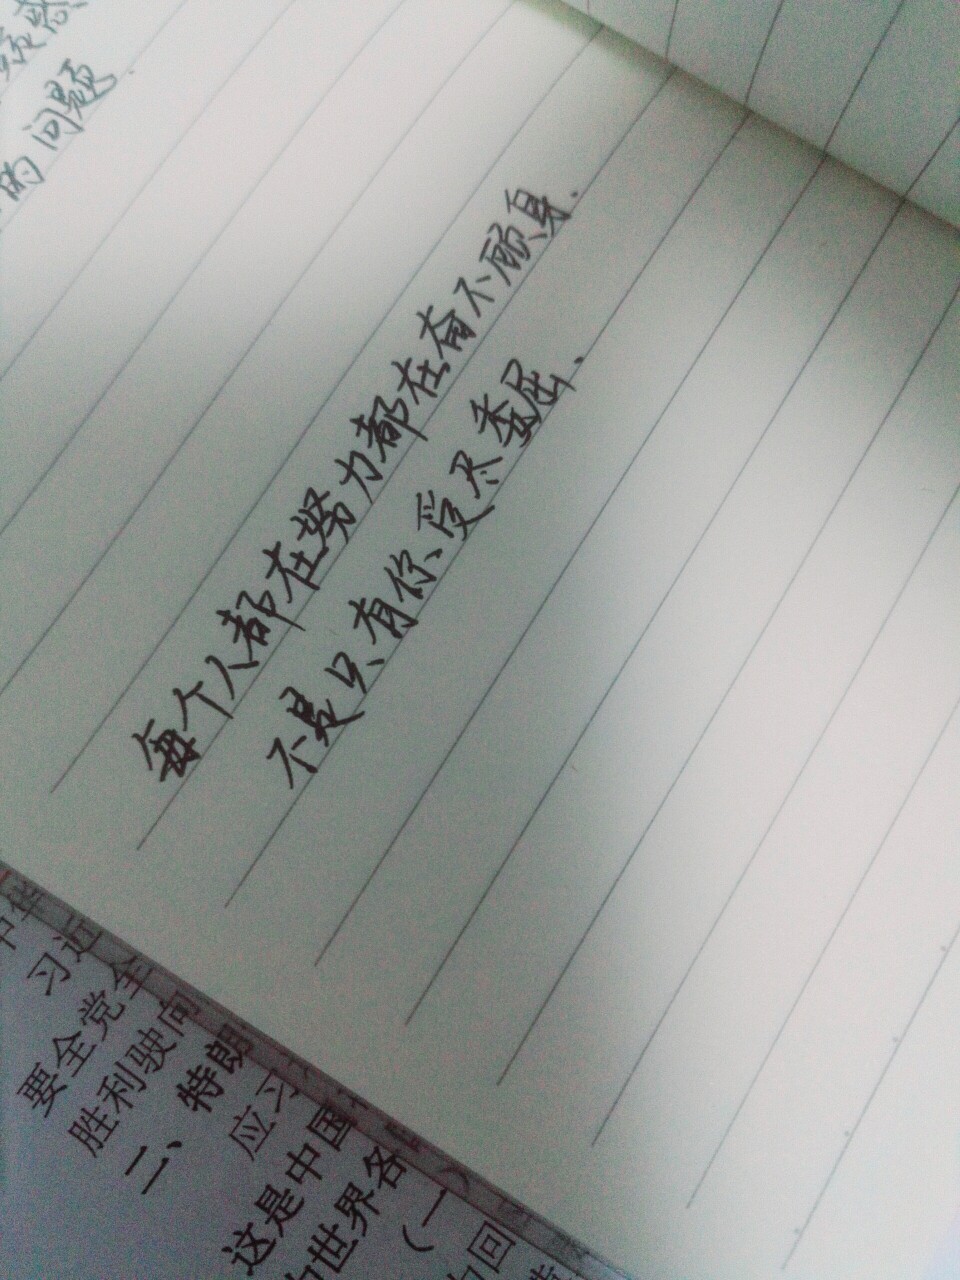 疑惑
的问题
每个人都在努力都在奋不顾身.
不是只有你受尽委屈.
中华
习近
要全党全
胜利驶向
二、特朗
应习
这是中国
世界各
(一
回